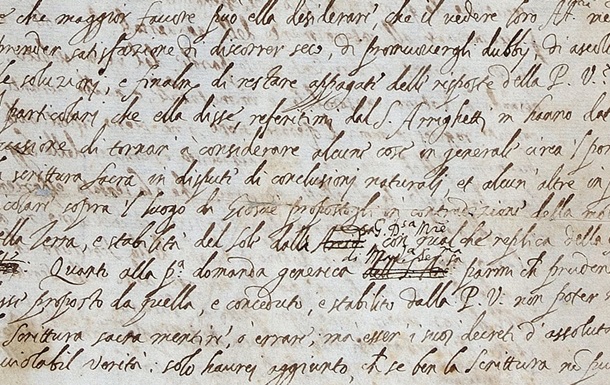 e che maggior favore può ella desiderare, che il vedere loro Alt.
prender satisfazione di discorrer seco, di promuovergli dubbj, di ascol
le soluzioni, e finalm. di restare appagati delle risposte della P. V.ª
particolari che ella disse, referitimi dal S. Arrighetti, m'hanno dat
casione di tornare à considerare alcune cose in generale circa 'l por
la scrittura sacra in dispute di conclusioni naturali, et alcun' altre in
colari sopra 'l luogo di Giosuè propostogli in contradizione della mo
ella Terra, e stabilità del Sole dalla G. D.sa M.re
con qualche replica della
di Mad.ª Ser.ma
Quanto alla p.ª domanda generica parmi ch. pruden
sse proposto da quella, e conceduto, e stabilito dalla P. V. non poter
Scrittura sacra mentire, ò errare, ma esser' i suoi decreti d'assoluta
nviolabil verità: solo haurei aggiunto, ch. se ben la Scrittura